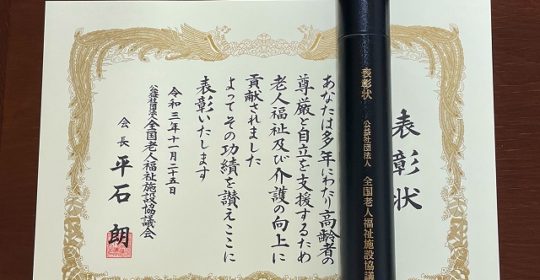 表彰状
表彰状　公益社団法人　全国老人福祉施設協議
あなたは多年にわたり高齢者の
尊厳と自立を支援するため
老人福祉及び介護の向上に
貢献されました
よってその功績を讃えここに
表彰いたします
令和三年十一月二十五日
公益社団法人全国老人福祉施設協議会
会長　平石　朗